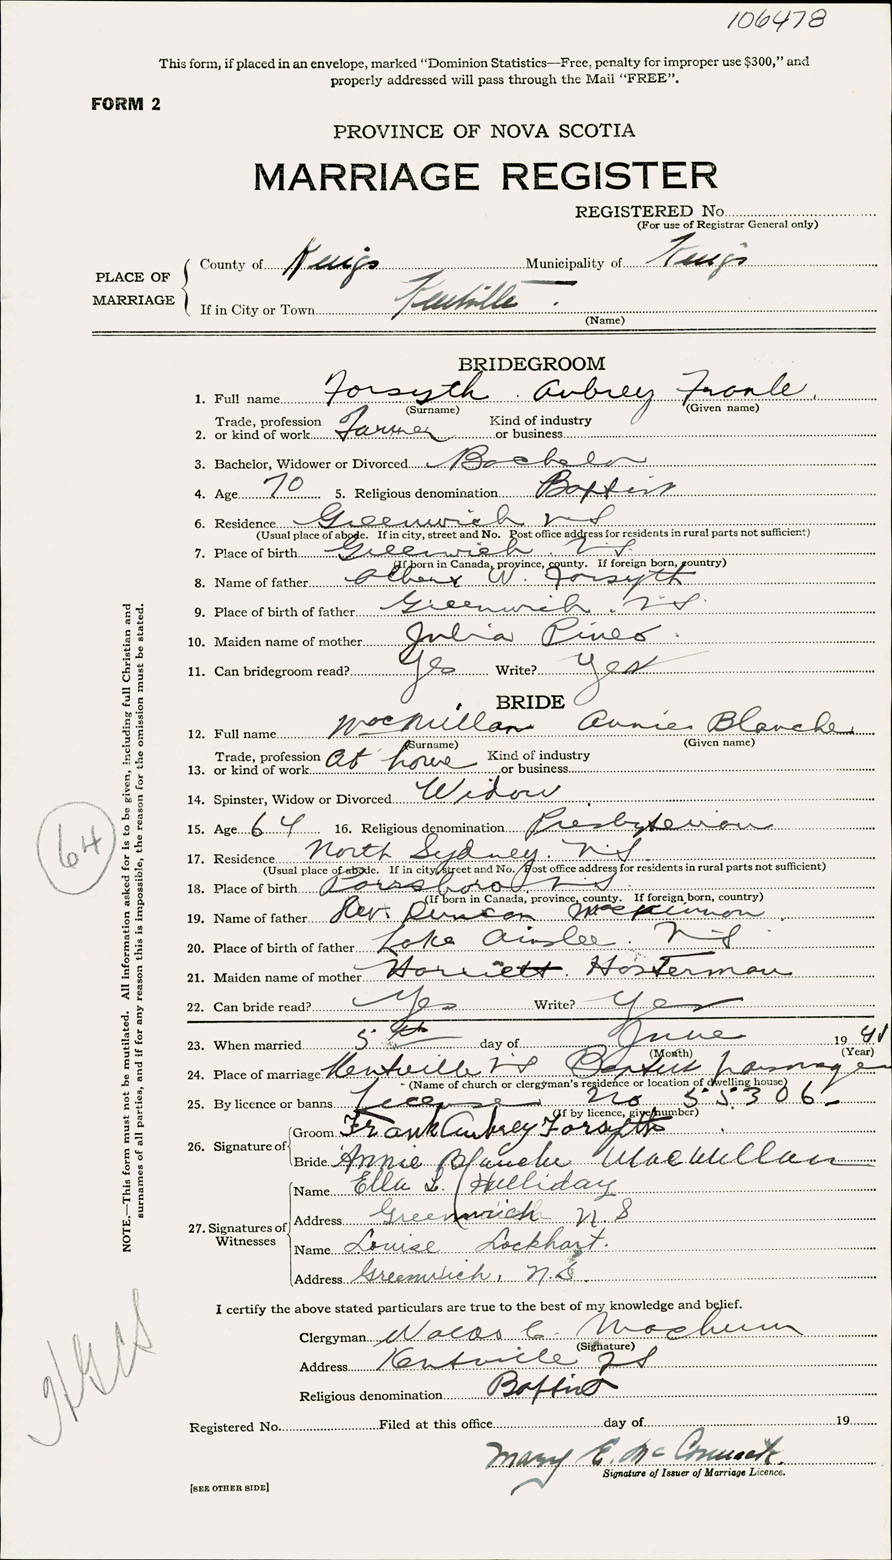 106478
This form, if placed in an envelope, marked "Dominion Statistics—Free, penalty for improper use $300," and
properly addressed will pass through the Mail "FREE".
FORM 2
PROVINCE OF NOVA SCOTIA
MARRIAGE REGISTER
REGISTERED No.
(For use of Registrar General only)
PLACE OF MARRIAGE
County of Kings Municipality of Kings
If in City or Town Kentville.
(Name)
BRIDEGROOM
1. Full name Forsyth Aubrey
(Surname) (Given name)
2. Trade, profession or kind of work Farmer Kind of industry or business
3. Bachelor, Widower or Divorced Bachelor
4. Age 70 5. Religious denomination Baptist
6. Residence Greenwich NS
(Usual place of abode. If in city, street and No. Post office address for residents in rural parts not sufficient)
7. Place of birth Greenwich. N.S.
(If born in Canada, province, county. If foreign born, country)
8. Name of father Albert W. Forsyth
9. Place of birth of father Greenwich. N.S.
10. Maiden name of mother Julia Pineo.
11. Can bridegroom read? Yes Write? Yes
BRIDE
12. Full name MacMillan Annie Blanche
(Surname) (Given name)
13. Trade, profession or kind of work At home Kind of industry or business
14. Spinster, Widow or Divorced Widow
15. Age 64 16. Religious denomination Presbyterian
17. Residence North Sydney. N.S.
(Usual place of abode. If in city, street and No. Post office address for residents in rural parts not sufficient)
18. Place of birth Parrsboro NS.
(If born in Canada, province, county. If foreign born, country)
19. Name of father Rev. Duncan McKinnon.
20. Place of birth of father Lake Ainslee. NS.
21. Maiden name of mother Harriett. Hosterman
22. Can bride read? Yes Write? Yes
23. When married 5th day of June 1941
(Month) (Year)
24. Place of marriage Kentville NS Baptist parsonage
(Name of church or clergyman's residence or location of dwelling house)
25. By licence or banns License No 55306-
(If by licence, give number)
26. Signature of
Groom Frank Aubrey Forsyth
Bride Annie Blanche MacMillan
27. Signatures of Witnesses
Name Ella L. Halliday
Address Greenwich N.S
Name Louise Lockhart.
Address Greenwich, N.S.
I certify the above stated particulars are true to the best of my knowledge and belief.
Clergyman
(Signature)
Address Kentville NS
Religious denomination Baptist
Registered No. Filed at this office day of 19
Mary E. McCormack.
Signature of Issuer of Marriage Licence.
[SEE OTHER SIDE]
NOTE.—This form must not be mutilated. All information asked for is to be given, including full Christian and
surnames of all parties, and if for any reason this is impossible, the reason for the omission must be stated.
64